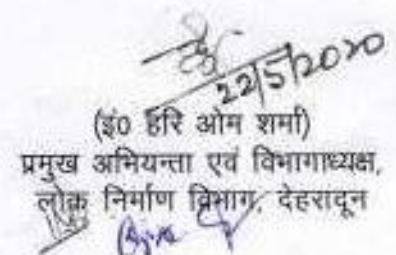 22/5/2020
(इं0 हरि ओम शर्मा)
प्रमुख अभियन्ता एवं विभागाध्यक्ष,
लोक निर्माण विभाग, देहरादून